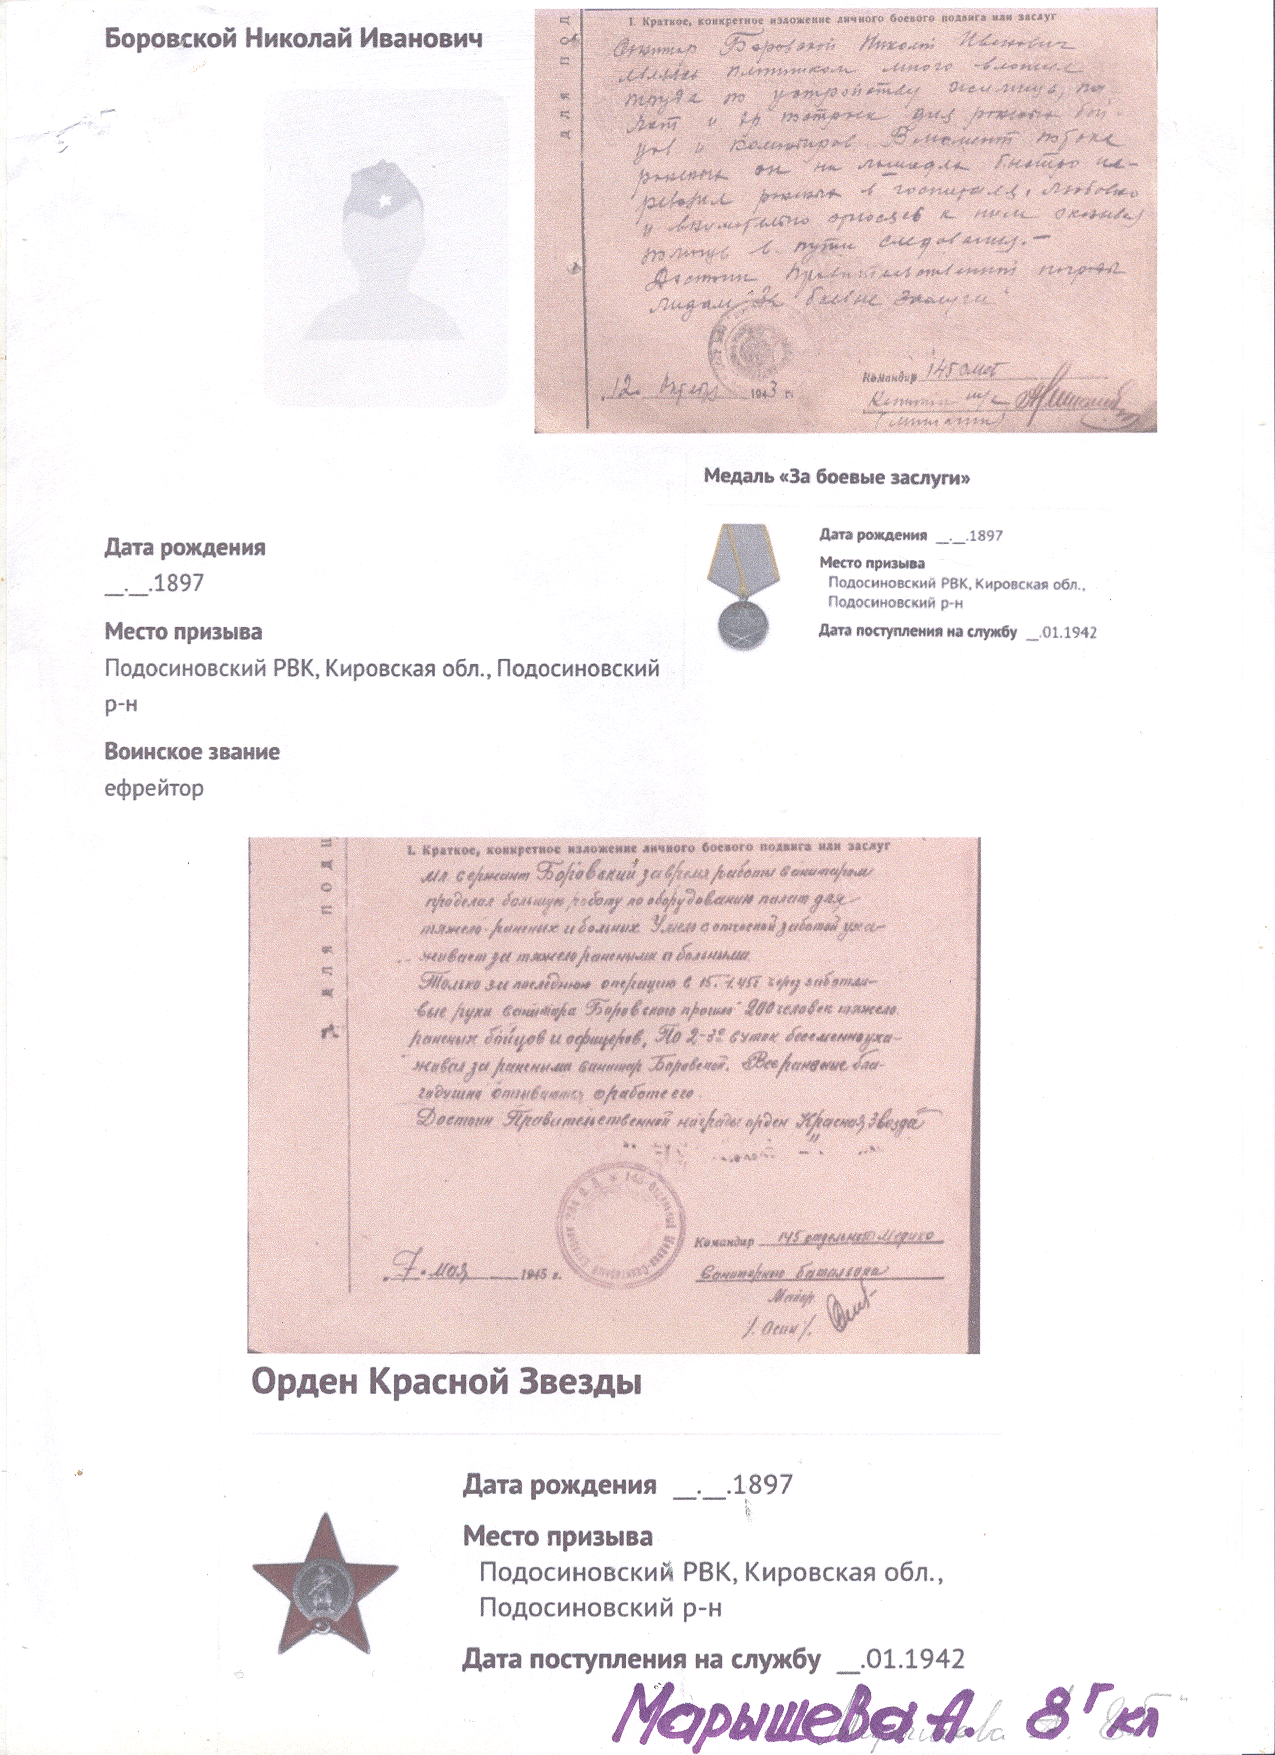 Боровской Николай Иванович
ДЛЯ ПОД
I. Краткое, конкретное изложение личного боевого подвига или заслуг
Санитар Боровской Николай Иванович
являясь плотником много вложил
труда по устройству жилищ, па-
лат и для раненых бой-
цов и командиров. В момент
раненых он на лошадях быстро пе-
ревозил раненых в госпиталя, любовно
и внимательно относясь к ним оказывал
помощь в пути следования. —
Достоин Правительственной награды
медали "За боевые заслуги"
12 1943 г.
Командир 145 омсб
Капитан м/с
Медаль «За боевые заслуги»
Дата рождения __.__.1897
Место призыва
Подосиновский РВК, Кировская обл.,
Подосиновский р-н
Дата поступления на службу __.01.1942
Дата рождения
__.__.1897
Место призыва
Подосиновский РВК, Кировская обл., Подосиновский
р-н
Воинское звание
ефрейтор
ДЛЯ ПОДШ
I. Краткое, конкретное изложение личного боевого подвига или заслуг
мл сержант Боровский за время работы санитаром
проделал большую работу по оборудованию палат для
тяжело-раненых и больных. Умело с отцовской заботой уха-
живает за тяжело ранеными и больными.
Только за последнюю операцию с 15.1.45г через заботли-
вые руки санитара Боровского прошло 200 человек тяжело
раненых бойцов и офицеров, По 2-3е суток бессменно уха-
живал за ранеными санитар Боровской. Все раненые бла-
годушно отзываются о работе его.
Достоин Правительственной награды орден "Красная Звезда"
7. мая 1945 г.
Командир 145 отдельного Медико
Санитарного батальона
Майор
/. Осин /.
Орден Красной Звезды
Дата рождения __.__.1897
Место призыва
Подосиновский РВК, Кировская обл.,
Подосиновский р-н
Дата поступления на службу __.01.1942
Марышева А. 8 г кл